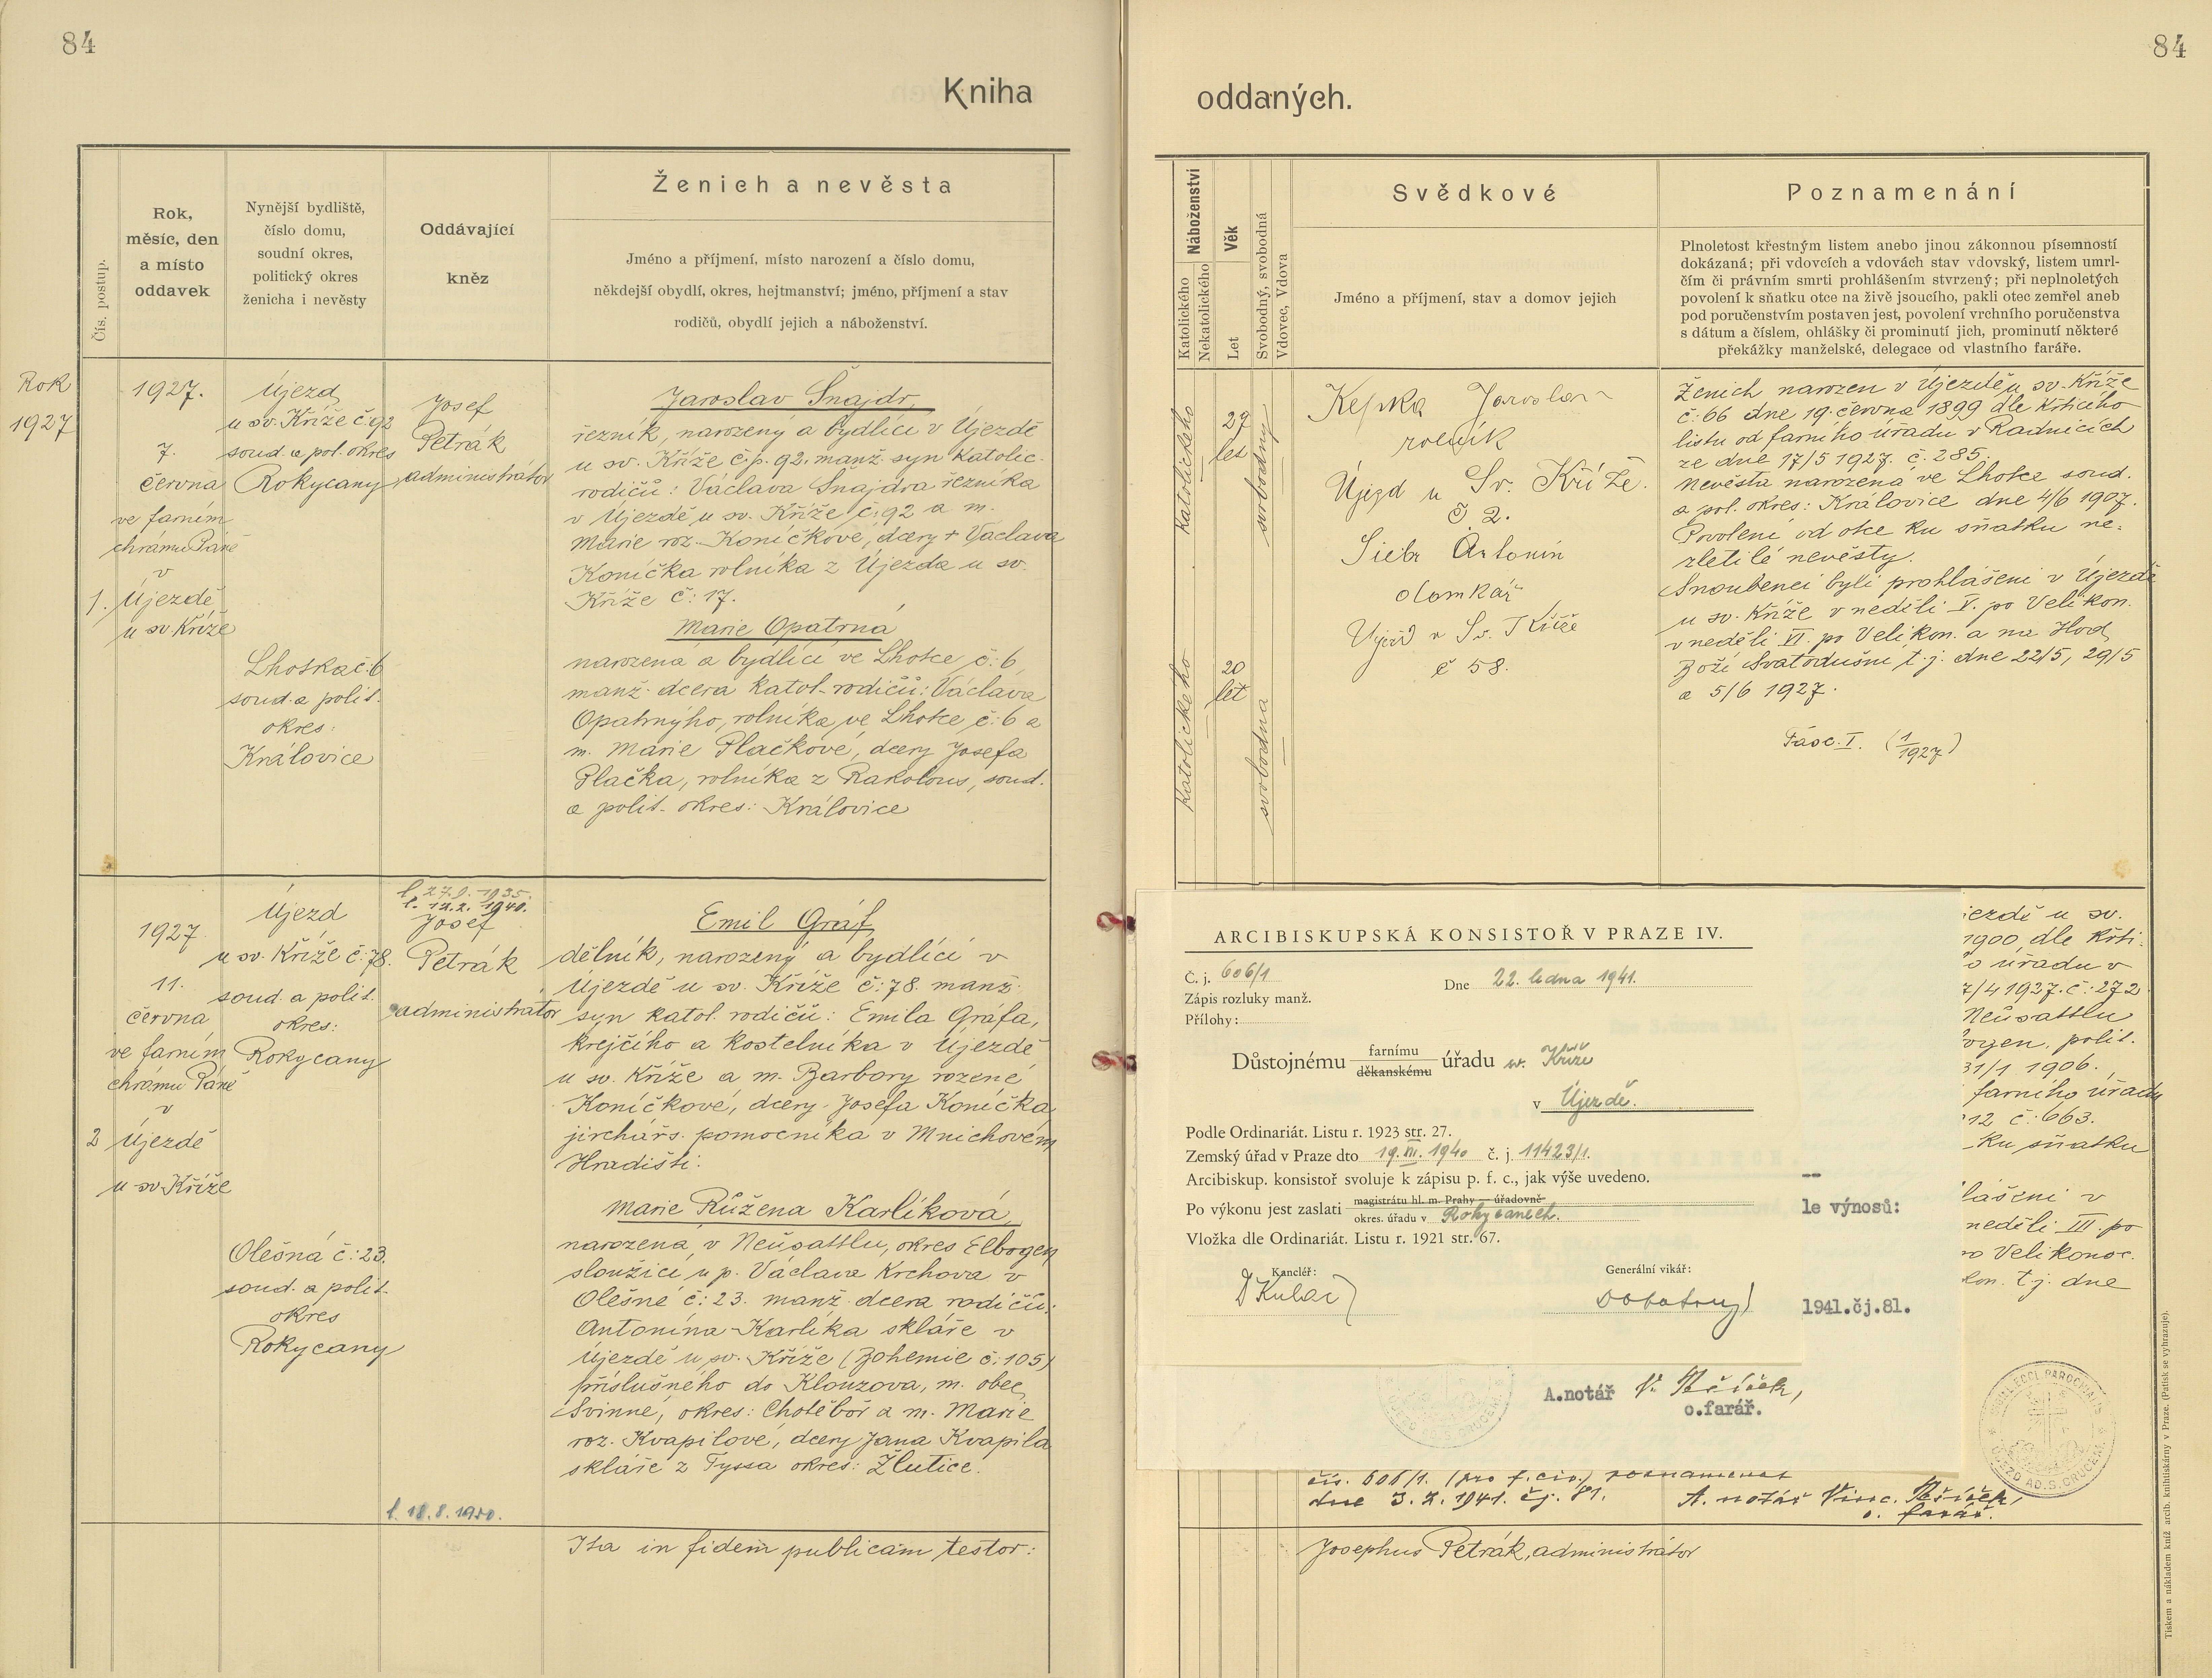 84
84
Kniha
oddaných.
Čís. postup.
Rok,
měsíc, den
a místo
oddavek
Nynější bydliště,
číslo domu,
soudní okres,
politický okres
ženicha i nevěsty
Oddávající
kněz
Ženich a nevěsta
Jméno a příjmení, místo narození a číslo domu,
někdejší obydlí, okres, hejtmanství; jméno, příjmení a stav
rodičů, obydlí jejich a náboženství.
Náboženství
Katolického
Nekatolického
Věk
Let
Svobodný, svobodná
Vdovec, Vdova
Svědkové
Jméno a příjmení, stav a domov jejich
Poznamenání
Plnoletost křestným listem anebo jinou zákonnou písemností
dokázaná; při vdovcích a vdovách stav vdovský, listem umrl-
čím či právním smrti prohlášením stvrzený; při neplnoletých
povolení k sňatku otce na živě jsoucího, pakli otec zemřel aneb
pod poručenstvím postaven jest, povolení vrchního poručenstva
s dátum a číslem, ohlášky či prominutí jich, prominutí některé
překážky manželské, delegace od vlastního faráře.
Rok
1927
1.
1927.
7.
června
ve farním
chrámu Páně
v
Újezdě
u sv. Kříže
Újezd
u sv. Kříže č. 92
soud. a pol. okres
Rokycany
Lhotka č. 6
soud. a polit.
okres:
Královice
Josef
Petrák
administrátor
Jaroslav Šnajdr,
řezník, narozený a bydlící v Újezdě
u sv. Kříže č.p. 92. manž. syn katolic.
rodičů: Václava Šnajdra řezníka
v Újezdě u sv. Kříže č: 92 a m.
Marie roz. Koníčkové, dcery + Václava
Koníčka rolníka z Újezda u sv.
Kříže č: 17.
Marie Opatrná
narozená a bydlící ve Lhotce č: 6,
manž. dcera katol. rodičů: Václava
Opatrnýho, rolníka ve Lhotce č: 6 a
m. Marie Plačkové, dcery Josefa
Plačka, rolníka z Rakolous, soud.
a polit. okres: Královice
katolického
27
let
svobodný
katolického
20
let
svobodná
Kepka Jaroslav
rolník
Újezd u Sv. Kříže.
č 2.
Antonín
Újezd u Sv. Kříže
č 58.
Ženich narozen v Újezdě u sv. Kříže
č: 66 dne 19. června 1899 dle křticího
listu od farního úřadu v Radnicích
ze dne 17/5 1927. č. 285.
Nevěsta narozená ve Lhotce soud.
a pol. okres: Královice dne 4/6 1907.
Povolení od otce ku sňatku ne-
zletilé nevěsty.
Snoubenci byli prohlášeni v Újezdě
u sv. Kříže v neděli V. po Velikon.
v neděli VI. po Velikon. a na Hod
Boží Svatodušní t. j. dne 22/5, 29/5
a 5/6 1927.
Fasc. I. (1/1927)
2
1927
11.
června
ve farním
chrámu Páně
v
Újezdě
u sv. Kříže
Újezd
u sv. Kříže č: 78.
soud. a polit.
okres:
Rokycany
Olešná č: 23.
soud. a polit.
okres
Rokycany
l. 27.9. 1935.
l. 12.2. 1940.
Josef
Petrák
administrátor
l. 18.8. 1950.
Emil Gráf,
dělník, narozený a bydlící v
Újezdě u sv. Kříže č: 78. manž.
syn katol. rodičů: Emila Gráfa,
krejčího a kostelníka v Újezdě
u sv. Kříže a m. Barbory rozené
Koníčkové, dcery Josefa Koníčka,
jirchářs. pomocníka v Mnichovém
Hradišti.
Marie Růžena Karlíková,
narozená v Neüsattlu, okres Elbogen
sloužící u p. Václava Krchova v
Olešné č: 23. manž. dcera rodičů:
Antonína Karlíka skláře v
Újezdě u sv. Kříže (Bohemie č: 105)
příslušného do Klouzova, m. obec
Svinné, okres: Chotěboř a m. Marie
roz. Kvapilové, dcery Jana Kvapila
skláře z Tyssa okres: Žlutice.
Ita in fidem publicam testor:
Josephus Petrák, administrátor
ARCIBISKUPSKÁ KONSISTOŘ V PRAZE IV.
Č. j. 606/1
Dne 22. ledna 1941.
Zápis rozluky manž.
Přílohy:
Důstojnému farnímu děkanskému úřadu sv. Kříže
v Újezdě.
Podle Ordinariát. Listu r. 1923 str. 27.
Zemský úřad v Praze dto 19. XII. 1940 č. j. 11423/1.
Arcibiskup. konsistoř svoluje k zápisu p. f. c., jak výše uvedeno.
Po výkonu jest zaslati magistrátu hl. m. Prahy — úřadovně
okres. úřadu v Rokycanech.
Vložka dle Ordinariát. Listu r. 1921 str. 67.
Kancléř:
Generální vikář:
le výnosů:
1941.čj.81.
A.notář
o.farář.
jezdě u sv.
1900, dle křti-
o úřadu v
7/4 1927. č: 272
Neüsattlu
bogen, polit.
31/1 1906.
farního úřadu
12 č: 663.
ku sňatku
lášeni v
neděli III. po
po Velikonoc.
kon. t. j. dne
čís. 606/1. (pro f. civ.) poznamenal
dne 3. 2. 1941. čj. 81.
A. notář Vinc.
o. farář.
ÚJEZD AD.S.CRUCEM
Tiskem a nákladem kníž. arcib. knihtiskárny v Praze. (Patisk se vyhrazuje).